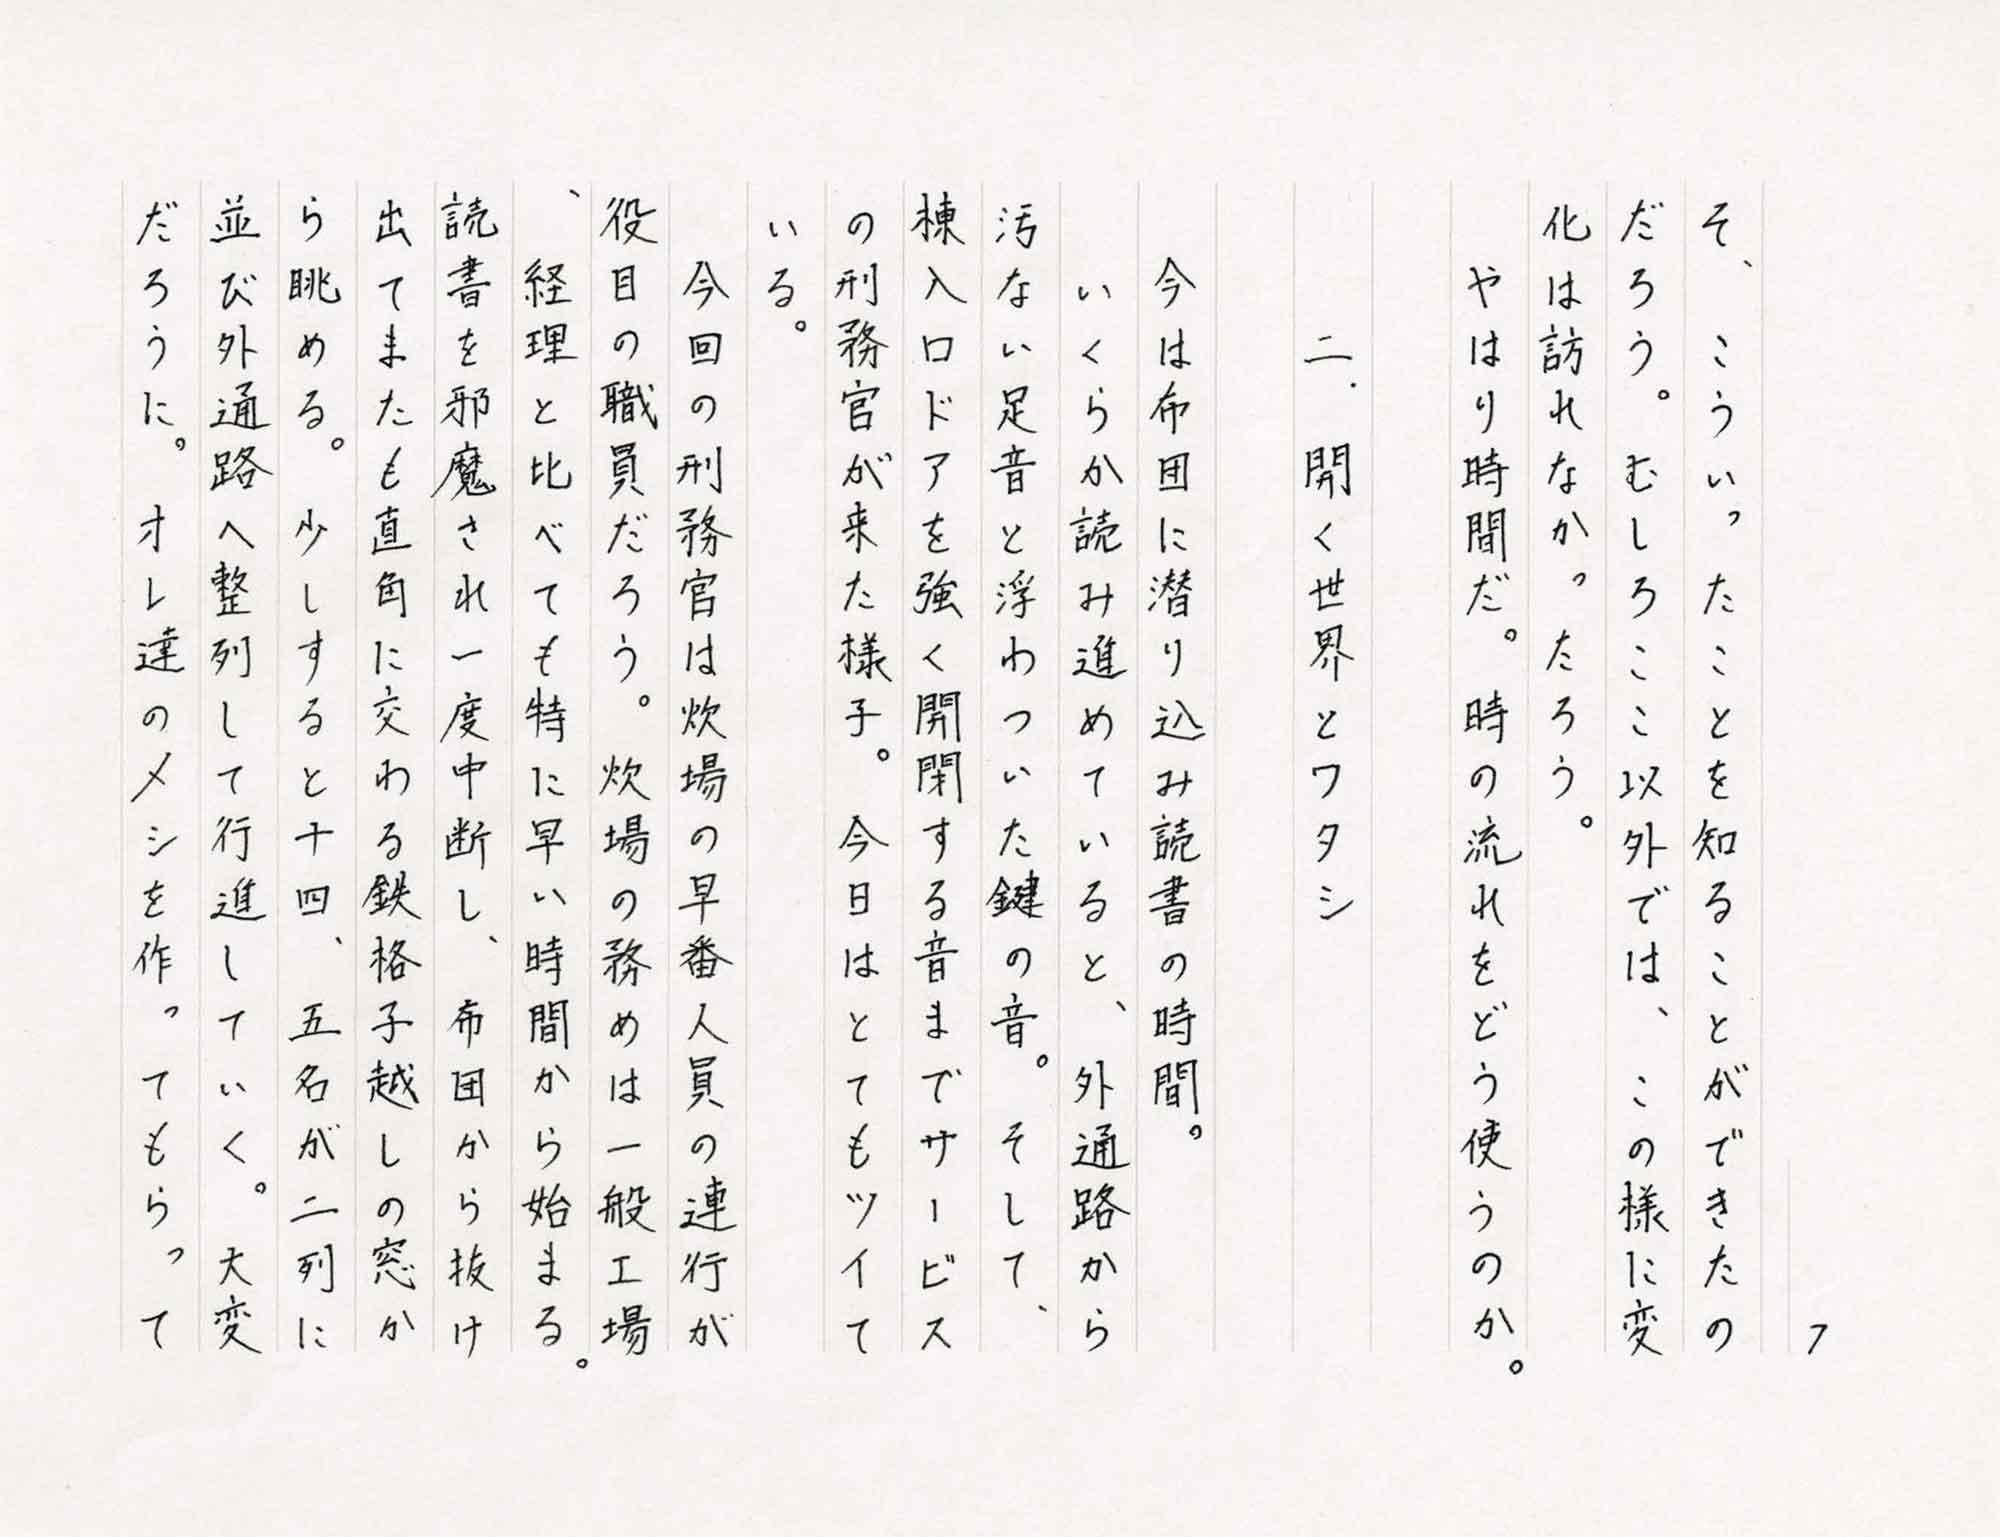 7
そ、こういったことを知ることができたの
だろう。むしろここ以外では、この様に変
化は訪れなかったろう。
やはり時間だ。時の流れをどう使うのか。
二．開く世界とワタシ
今は布団に潜り込み読書の時間。
いくらか読み進めていると、外通路から
汚ない足音と浮わついた鍵の音。そして、
棟入口ドアを強く開閉する音までサービス
の刑務官が来た様子。今日はとてもツイて
いる。
今回の刑務官は炊場の早番人員の連行が
役目の職員だろう。炊場の務めは一般工場
、経理と比べても特に早い時間から始まる。
読書を邪魔され一度中断し、布団から抜け
出てまたも直角に交わる鉄格子越しの窓か
ら眺める。少しすると十四、五名が二列に
並び外通路へ整列して行進していく。大変
だろうに。オレ達のメシを作ってもらって